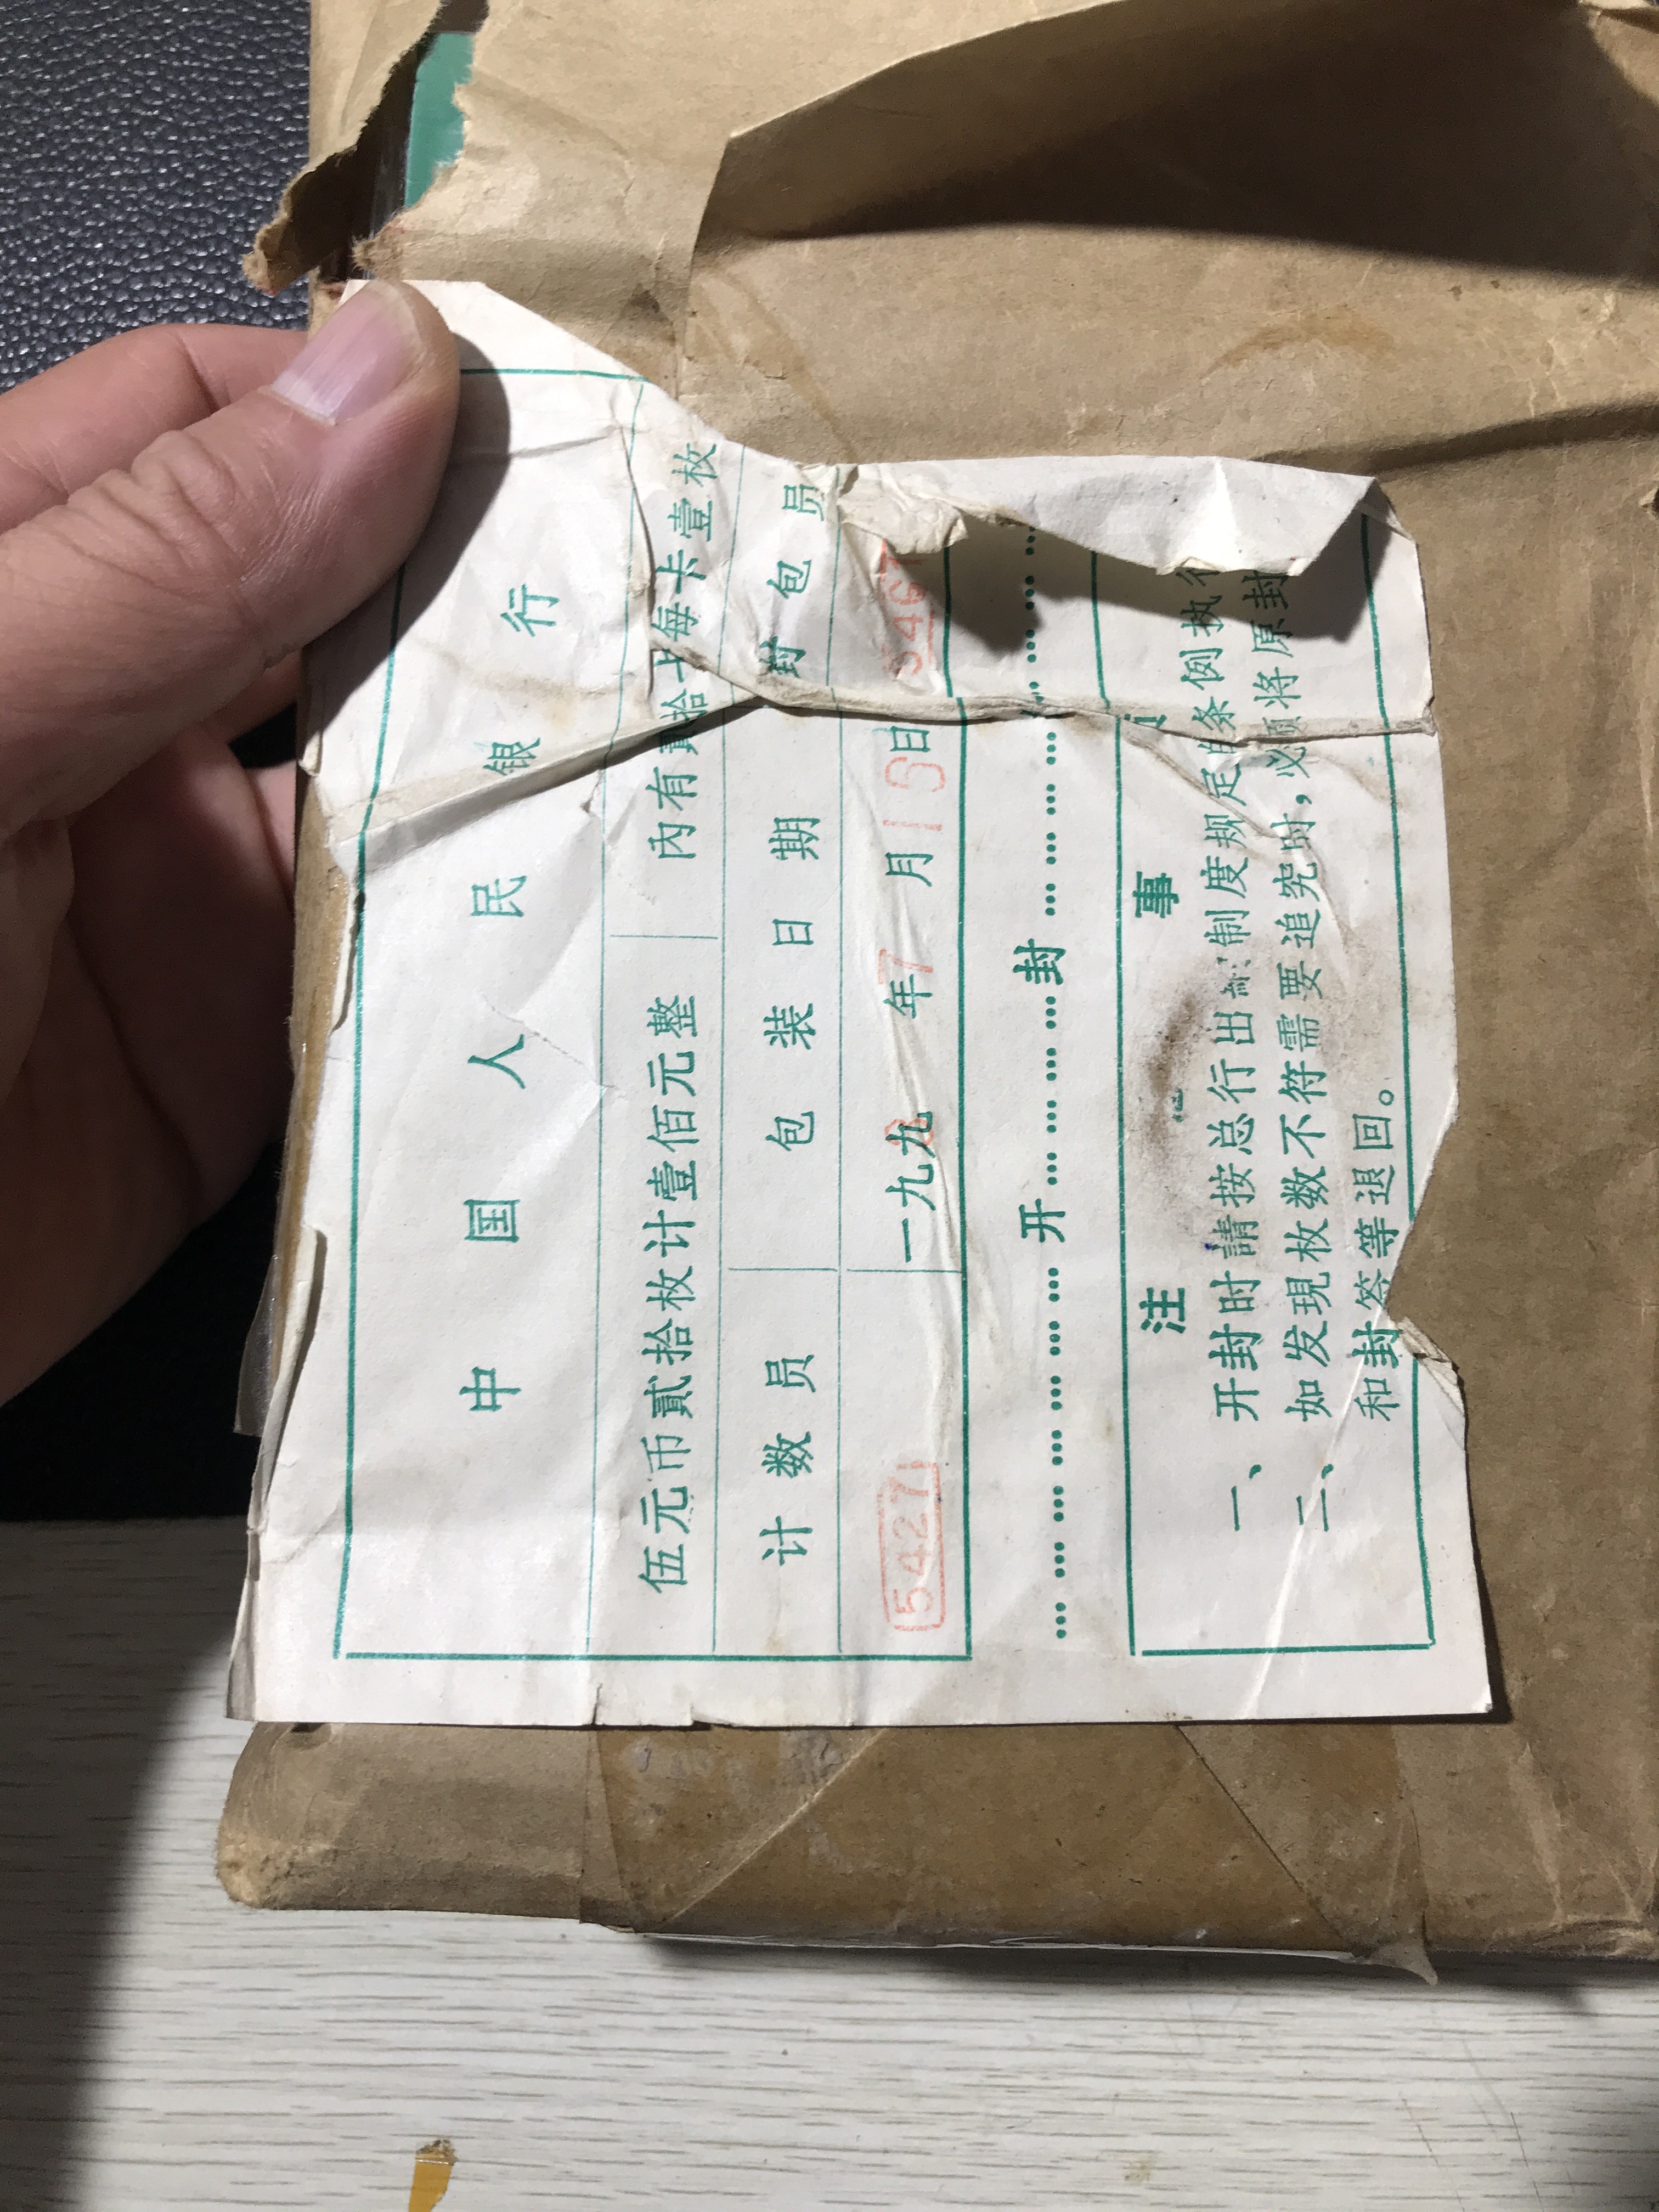 中国人民银行
伍元币貳拾枚计壹佰元整 内有貳拾卡每卡壹枚
计数员 包装日期 封包员
5427 一九九 年7月18日 546
开 封
注 事
一、开封时請按总行出 制度规定 条例执行
二、如发現枚数不符需要追究时，必須将原封
和封签等退回。